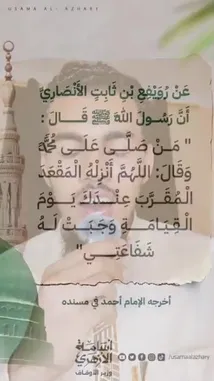 USAMA AL-AZHARI
عَنْ رُوَيْفِعِ بْنِ ثَابِتٍ الأَنْصَارِيِّ
أَنَّ رَسُولَ اللَّهِ ﷺ قَالَ :
" مَنْ صَلَّى عَلَى مُحَمَّدٍ
وَقَالَ: اللَّهُمَّ أَنْزِلْهُ الْمَقْعَدَ
الْمُقَرَّبَ عِنْدَكَ يَوْمَ
الْقِيَامَةِ وَجَبَتْ لَهُ
شَفَاعَتِي"
أخرجه الإمام أحمد في مسنده
أسامة
الأزهري
وزير الأوقاف
/usamaalazhary